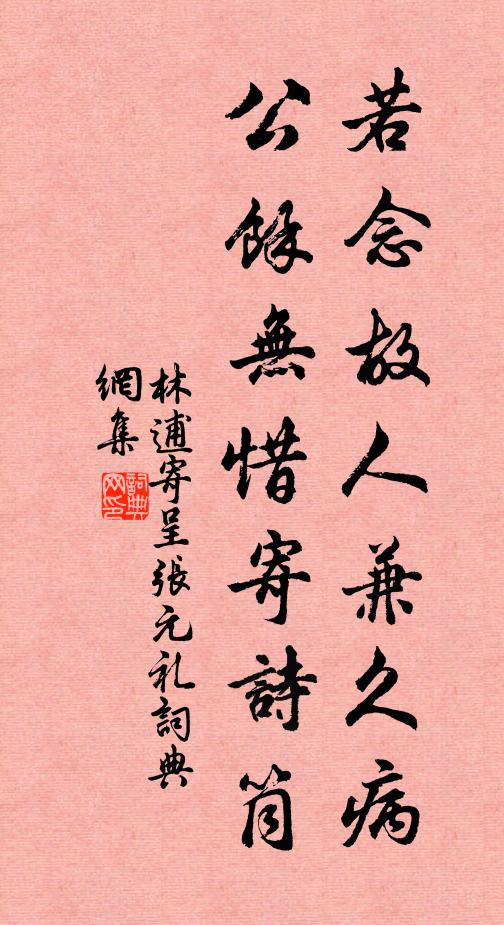 若念故人兼久病
公餘無惜寄詩筒
林逋寄呈張元礼詞典
網集
詞典
网印